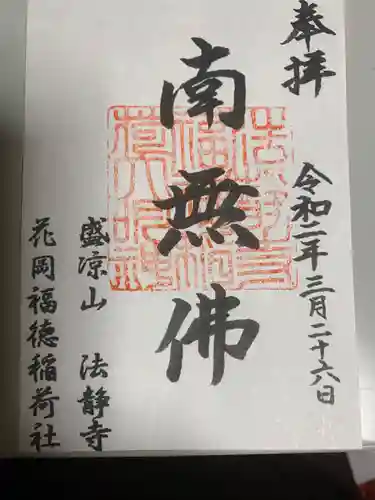 奉拝
令和二年三月二十六日
南無佛
盛凉山 法静寺
花岡福徳稲荷社